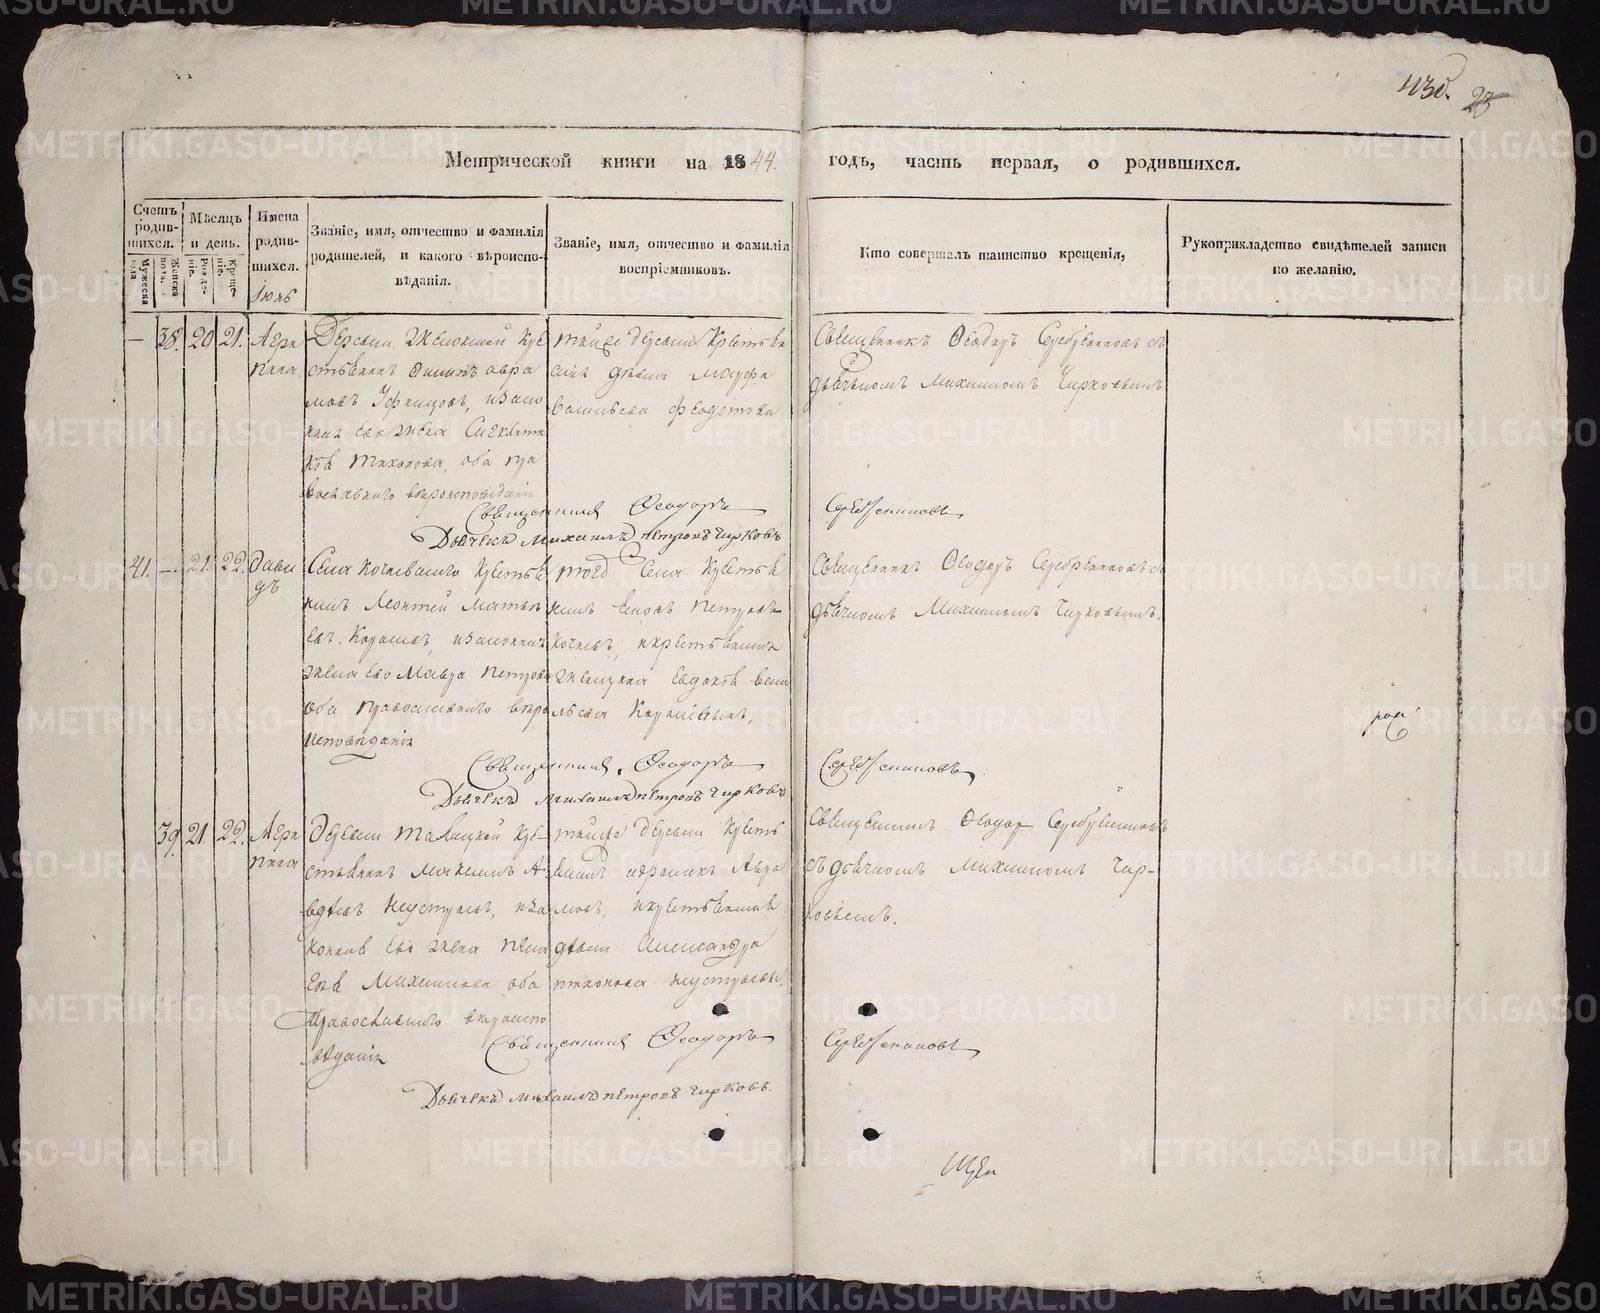 430. 23
Метрической книги на 1844. годъ, часть первая, о родившихся.
Счетъ родив-шихся.
Мужеска пола
Женска пола.
Мѣсяцъ и день.
Рожде-нiе.
Креще-нiе.
Имена родив-шихся.
Званіе, имя, отчество и фамилія родителей, и какого вѣроиспо-вѣданія.
Званіе, имя, отчество и фамилія воспріемниковъ.
Кто совершалъ таинство крещенія,
Рукоприкладство свидѣтелей записи по желанію.
Іюль
— 38. 20 21. Агри
пина
Деревни кре
стьянинъ авра
мовъ Уфинцовъ, изако
нная его жена
Тихонова, оба пра
вославнаго вѣроисповѣданія
тойже деревни Крестьян
Васильева Федотова
Священникъ Ѳеодоръ Серебренниковъ съ
дьячкомъ Михаиломъ Чирковымъ
Священникъ Ѳеодоръ Серебренниковъ
Дьячекъ Михаилъ Петровъ Чирковъ
41. — 21. 22. Дави
дъ
Села Кочневскаго Крестья
нинъ Леонтей Матвѣ
евъ изаконная
жена его Мавра Петрова
оба православнаго вѣро
исповѣданія
того Села Крестья
нинъ Петровъ
Кочневъ, икрестьянская
женщина Евдокія Васи
льева
Священникъ Ѳеодоръ Серебренниковъ съ
дьячкомъ Михаиломъ Чирковымъ.
Священникъ Ѳеодоръ Серебренниковъ.
Дьячекъ Михаилъ Петровъ Чирковъ
39. 21. 22. Агри
пина
Деревни Талицкой Кре
стьянинъ А
вдѣевъ Неустроевъ, иза
конная его жена Пела
гея Михаилова оба
православнаго вѣроиспо
вѣданія
тойже деревни Кресть
янинъ Авра
мовъ, икрестьянская
дѣвица Александра
Тихонова Неустроевы.
Священникъ Ѳеодоръ Серебренниковъ
съ дьячкомъ Михаиломъ Чир-
ковымъ.
Священникъ Ѳеодоръ Серебренниковъ
Дьячекъ Михаилъ Петровъ Чирковъ.
METRIKI.GASO-URAL.RU